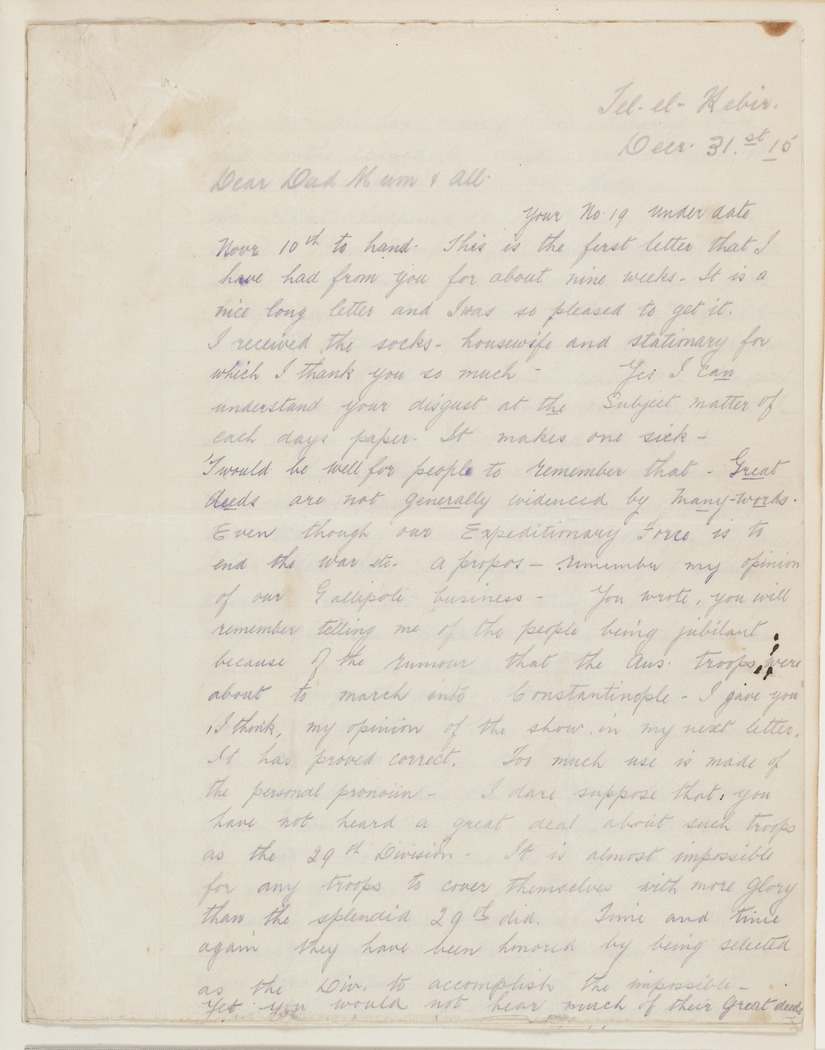 Tel-el-Kebir.
Decr. 31.st 15
Dear Dad Mum & All.
Your No 19 under date
Novr 10th to hand. This is the first letter that I
have had from you for about nine weeks. It is a
nice long letter and I was so pleased to get it.
I received the socks - housewife and stationary for
which I thank you so much - Yes I can
understand your disgust at the Subject matter of
each days paper. It makes one sick -
Twould be well for people to remember that - Great
deeds are not generally evidenced by many-words.
Even though our Expeditionary Force is to
end the war etc. Apropos - remember my opinion
of our Gallipoli business - You wrote, you will
remember telling me of the people being jubilant
because of the rumour that the Aus. troops were
about to march into Constantinople - I gave you
, I think, my opinion of the show in my next letter.
It has proved correct. Too much use is made of
the personal pronoun - I dare suppose that, you
have not heard a great deal about such troops
as the 29th Division - It is almost impossible
for any troops to cover themselves with more Glory
than the splendid 29th did. Time and time
again they have been honored by being selected
as the Div. to accomplish the impossible -
Yet you would not hear much of their Great deeds